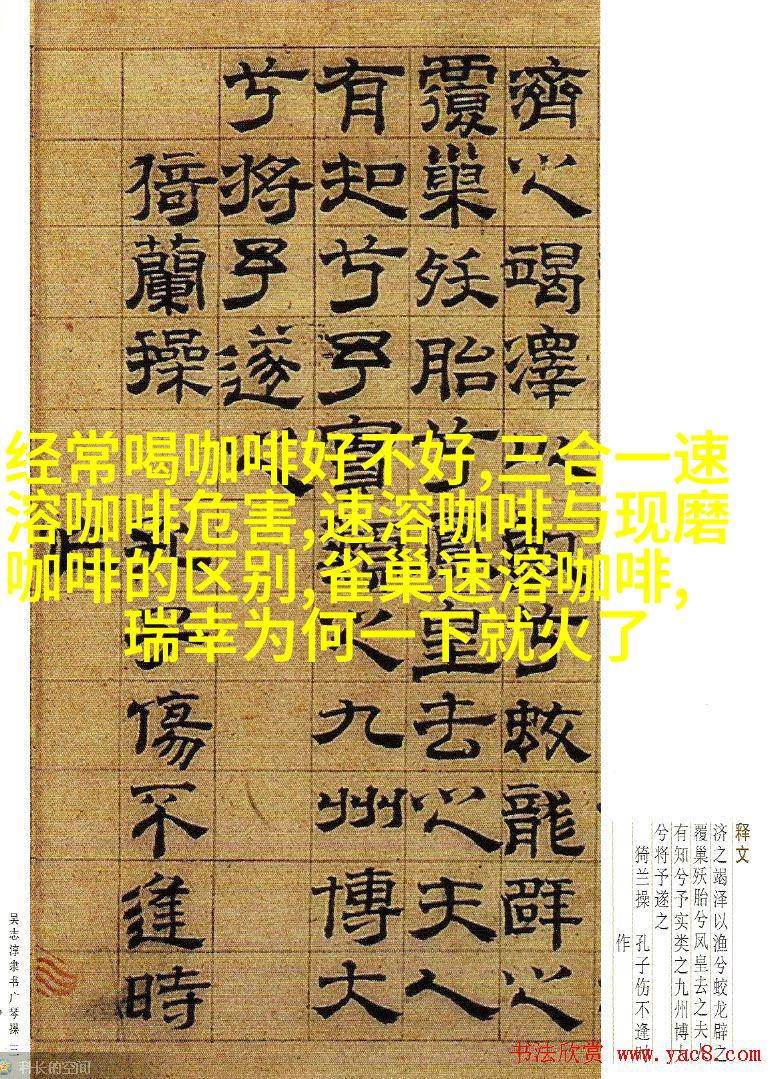 经常喝咖啡好不好,三合一速
溶咖啡危害,速溶咖啡与现磨
咖啡的区别,雀巢速溶咖啡,
瑞幸为何一下就火了
濟之竭澤以兮蛟龍辟之
覆巢殀胎兮皇去之夫人
有知兮予實之九州博大
兮將予遂之
猗蘭操 子傷不逢時
作
释文
济之竭泽以渔兮蛟龙辟之
覆巢殀胎兮凤皇去之夫
有知兮予实类之九州博
兮将予遂之
猗兰操 孔子伤不逢时
作
吴志淳隶书广琴操 三
科长的空间
书法欣赏 www.yac8.com